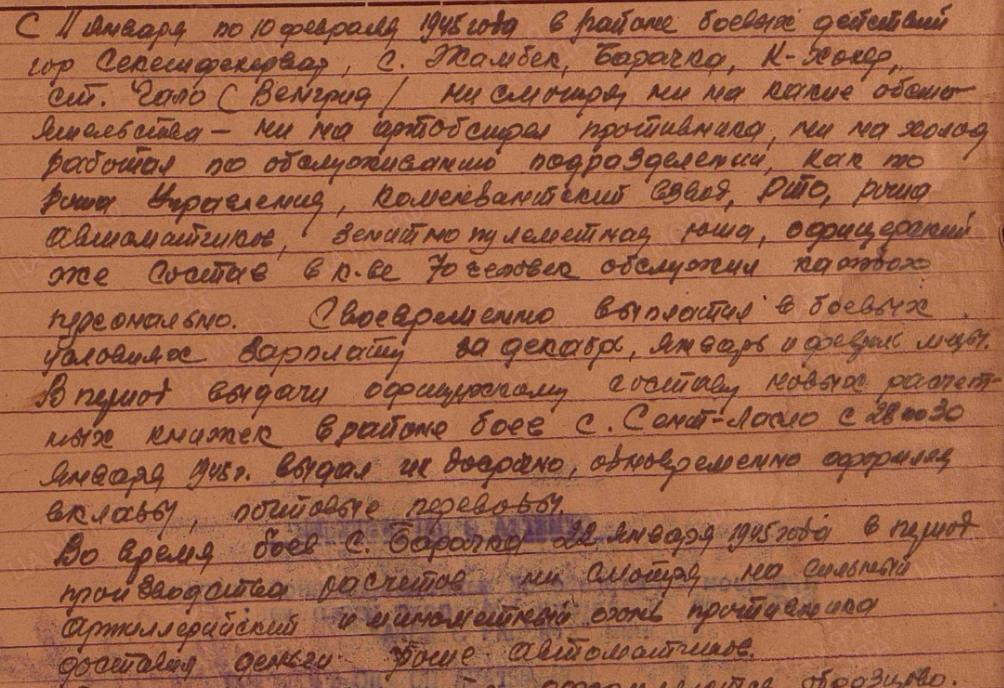 С 11 января по 10 февраля 1945 года в районе боевых действий
гор Секешфехервар, с. Жамбек, Барачка,
ст. Гало (Венгрия) ни смотря ни на какие обсто-
ятельства – ни на артобстрел противника, ни на холод
работал по обслуживанию подразделений, как то
рота Управления, комендантский взвод, РТО, рота
автоматчиков, зенитно пулеметная рота, офицерский
же состав в к-ве 70 человек обслужил каждого
персонально. Своевременно выплатил в боевых
условиях зарплату за декабрь, январь и февраль м-цы.
В период выдачи офицерскому составу новых расчет-
ных книжек в районе боев с. Сент-Ласло с 28 по 30
января 1945 г. выдал их досрочно, одновременно оформляя
вклады, почтовые переводы.
Во время боев с. Барачка 22 января 1945 года в период
производства расчетов ни смотря на сильный
артиллерийский и минометный огонь противника
доставил деньги роте автоматчиков.
образцово.